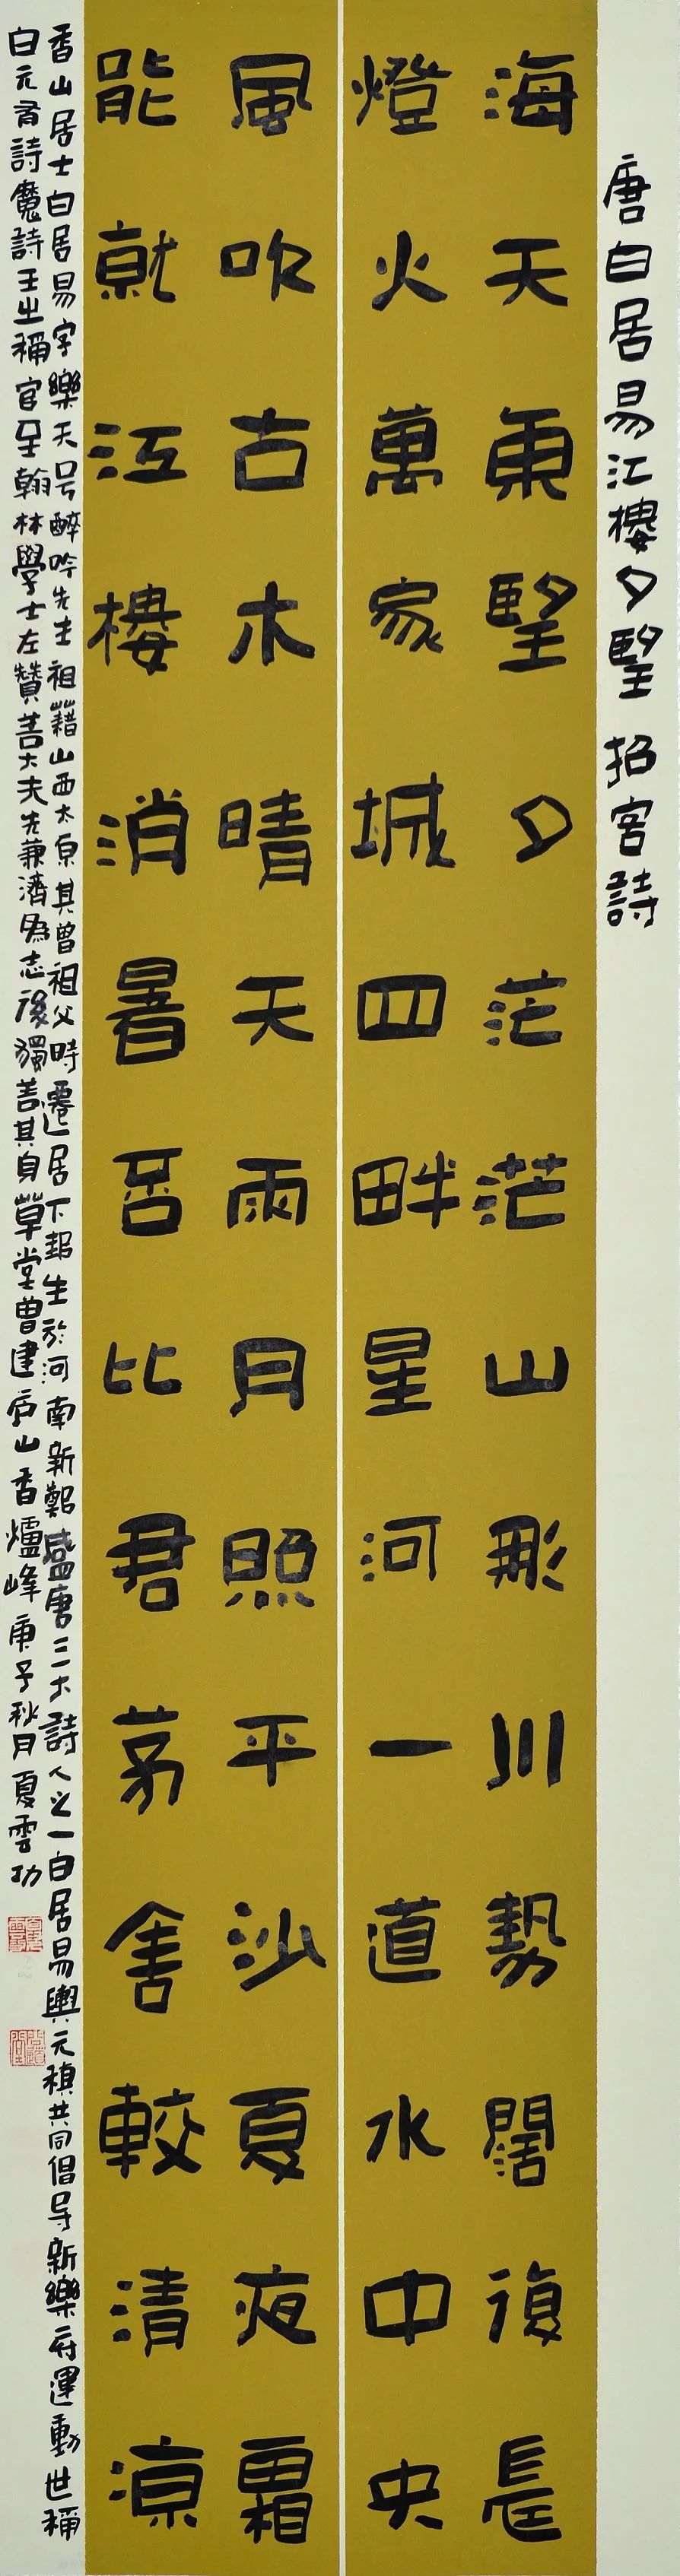 唐白居易江樓夕朢招客詩
海天東朢夕茫茫山形川勢闊復長
燈火萬家城四畔星河一道水中央
風吹古木晴天雨月照平沙夏夜霜
能就江樓消暑否比君茅舍較清涼
香山居士白居易字樂天号醉吟先生祖藉山西太原其曾祖父時遷居下邽生於河南新鄭盛唐三大詩人之一白居易與元稹共同倡导新樂府運動世稱
白元有詩魔詩王之稱官至翰林學士左贊善大夫先兼濟為志後獨善其身草堂曾建庐山香爐峰庚子秋月夏雲功